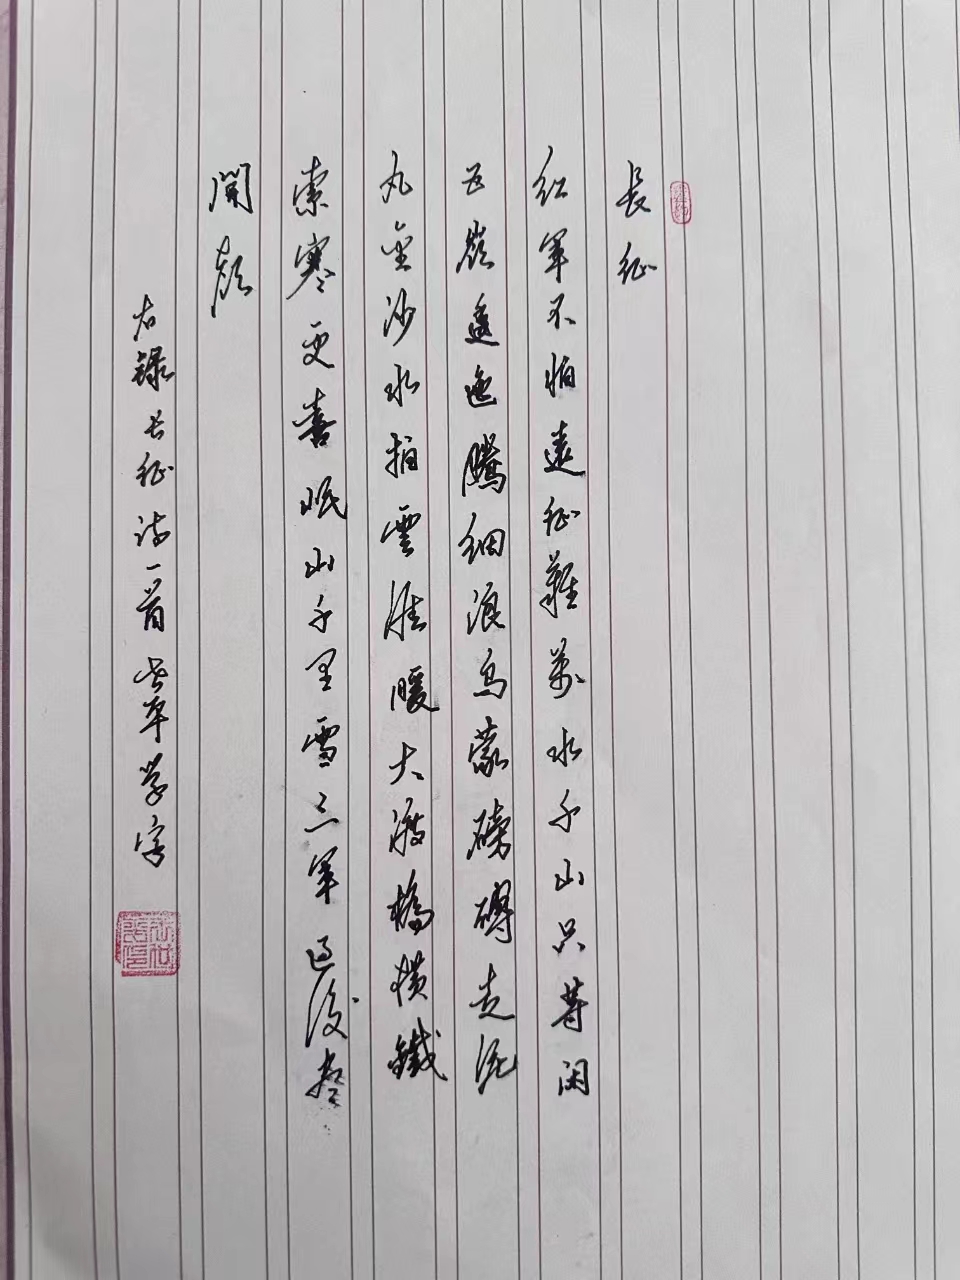 長征
红军不怕遠征難萬水千山只等闲
五嶺逶迤騰细浪烏蒙磅礴走泥
丸金沙水拍雲崖暖大渡橋横鐵
索寒更喜岷山千里雪三軍过後盡
開颜
右録长征诗一首 草学字